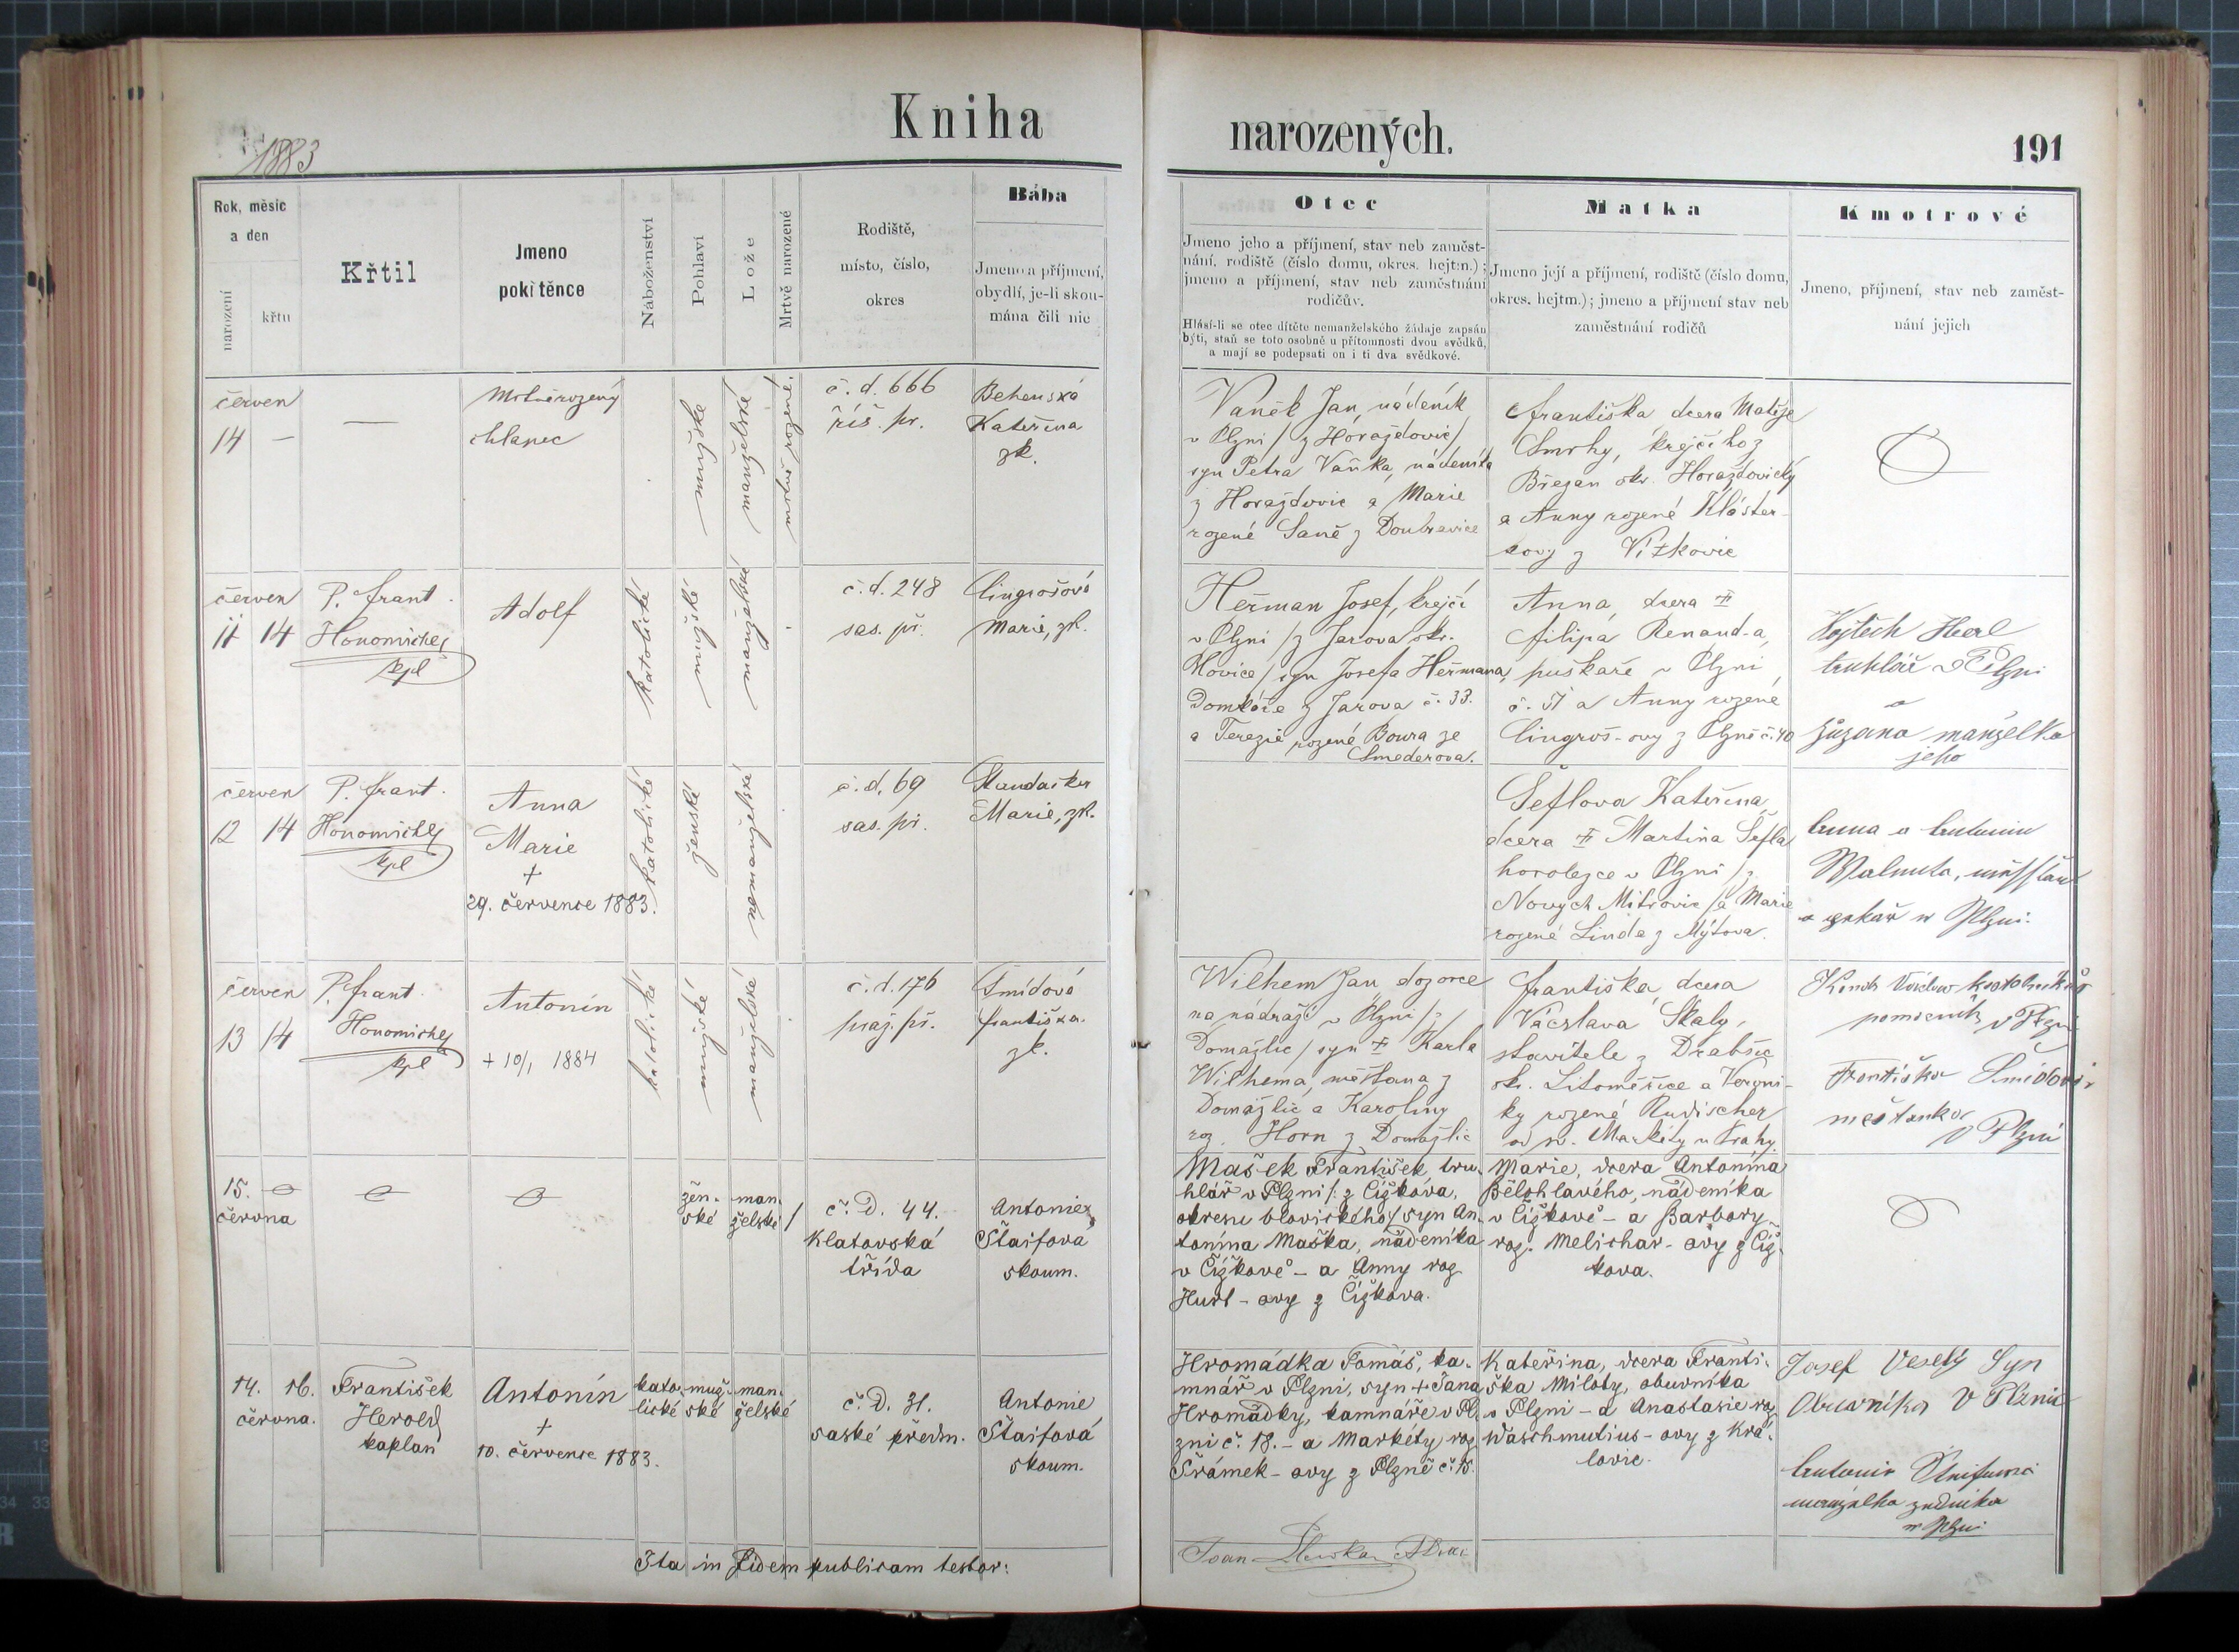 Kniha narozených.
1883
191
Rok, měsíc
a den
narození
křtu
Křtil
Jmeno
pokřtěnce
Náboženství
Pohlaví
Lože
Mrtvě narozené
Rodiště,
místo, číslo,
okres
Bába
Jmeno a příjmení,
obydlí, je-li skou-
mána čili nic
Otec
Jmeno jeho a příjmení, stav neb zaměst-
nání, rodiště (číslo domu, okres. hejtm.);
jmeno a příjmení, stav neb zaměstnání
rodičův.
Hlásí-li se otec dítěte nemanželského žádaje zapsán
býti, staň se toto osobně u přítomnosti dvou svědků,
a mají se podepsati on i ti dva svědkové.
Matka
Jmeno její a příjmení, rodiště (číslo domu,
okres. hejtm.); jmeno a příjmení stav neb
zaměstnání rodičů
Kmotrové
Jmeno, příjmení, stav neb zaměst-
nání jejich
červen
14 —
—
Mrtvěrozený
chlapec
mužské
manželské
mrtvě rozené.
č. d. 666
říš. př.
Behenská
Kateřina
zk.
Vaněk Jan, nádeník
v Plzni /z Horažďovic/
syn Petra Vaňka, nádeníka
z Horažďovic a Marie
rozené Saně z Doubravice
Františka, dcera Matěje
Smrhy, krejčího z
Břežan okr. Horažďovický
a Anny rozené Klášter-
z Vítkovic
červen
11 14
P. Frant.
Honomichl
kpl
Adolf
katolické
mužské
manželské
č. d. 248
sas. př.
Cingrošová
Marie, zk.
Heřman Josef, krejčí
v Plzni /z Jarova okr.
Blovice/ syn Josefa Heřmana,
Domkáře z Jarova č. 33.
a Terezie rozené Boura ze
Smederova.
Anna, dcera †
Filipa Renaud-a,
puškaře v Plzni
č. 51 a Anny rozené
Cingroš-ovy z Plzně č. 40
Vojtěch Herl
truhlář v Plzni
a
Zuzana manželka
jeho
červen
12 14
P. Frant.
Honomichl
kpl
Anna
Marie
+
29. července 1883.
katolické
ženské
nemanželské
č. d. 69
sas. př.
Marie, zk.
Šeflova Kateřina,
dcera † Martina Šefla
horolezce v Plzni /z
Nových Mitrovic/ a Marie
rozené Linda z Mýtova.
Anna a Antonín
Walenta, měšťan
a pekař w Plzni.
červen
13 14
P. Frant.
Honomichl
kpl
Antonín
+ 10/1 1884
katolické
mužské
manželské
č. d. 176
praž. př.
Šmídová
Františka.
zk.
Wilhem Jan dozorce
na nádraží v Plzni /z
Domažlic/ syn † Karla
Wilhema, měšťana z
Domažlic a Karoliny
roz. Horn z Domažlic
Františka, dcera
Václava Skaly,
stavitele z Drabšic
okr. Litoměřice a Veroni-
ky rozené Rudischer
od sv. Markéty u Prahy.
Václav
pomocník v Plzni
Františka Šmídová
měštanka
v Plzni
15.
června
žen-
ské
man-
želské /
č. D. 44.
Klatovská
třída
Antonie
Štaifová
skoum.
Mašek František, tru-
hlář v Plzni /: z Čížkova,
okresu blovického/ syn An-
tonína Maška, nádeníka
v Čížkově – a Anny roz.
Hurt-ovy z Čížkova.
Marie, dcera Antonína
Bělohlavého, nádeníka
v Čížkově – a Barbory
roz. Melichar-ovy z Číž-
kova.
14. 16.
června.
František
Herold
kaplan
Antonín
+
10. července 1883.
kato-
lické
muž-
ské
man-
želské
č. D. 31.
saské předm.
Antonie
Štaifová
skoum.
Hromádka Tomáš, ka-
mnář v Plzni, syn + Jana
Hromádky, kamnáře v Pl-
zni č. 18. – a Markéty roz.
Šrámek-ovy z Plzně č. 15.
Kateřina, dcera Franti-
ška Miloty, obuvníka
v Plzni – a Anastasie roz.
Waschmutius-ovy z Kra-
lovic.
Josef Veselý Syn
Obuvníka V Plzni
Antonie Štaifová
manželka zedníka
w Plzni
Ita in fidem publicam testor:
Joan